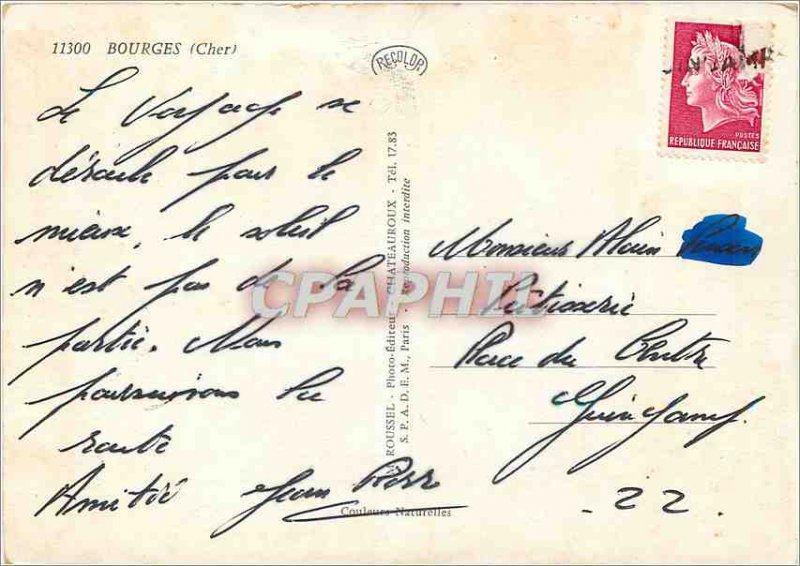 11300 BOURGES (Cher)
RECOLOR
Le Voyage se
déroule pour le
mieux, le soleil
n'est pas de la
partie. Nous
poursuivons la
route
Amitié Jean
ROUSSEL - Photo-Éditeur - CHATEAUROUX - Tél. 17.83
S. P. A. D. E. M., Paris - Reproduction Interdite
Couleurs Naturelles
POSTES
REPUBLIQUE FRANÇAISE
Monsieur Alain
Pâtisserie
Place du Centre
Guingamp
- 22.
CPAPHIL